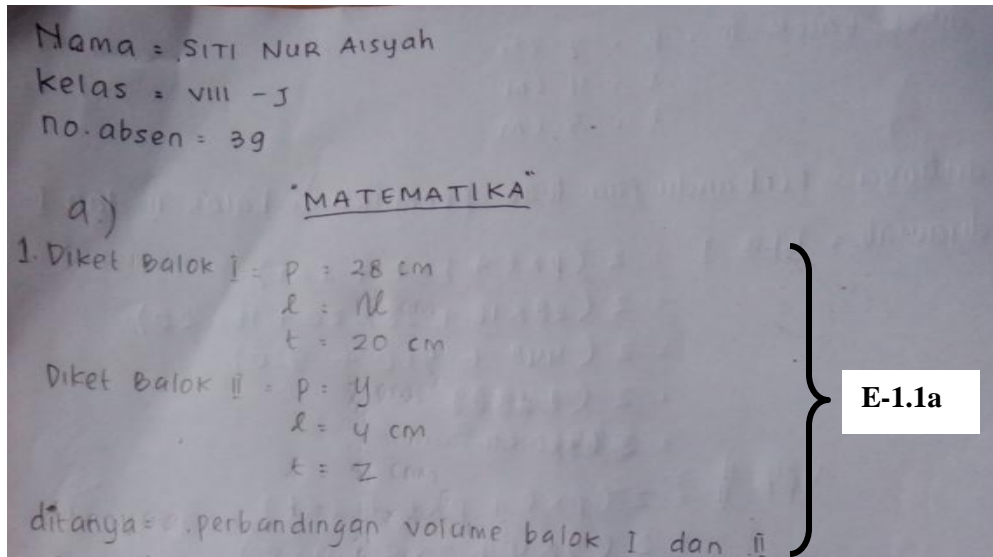 Nama = SITI NUR AISyah
Kelas = VIII - J
no. absen = 39
a.) "MATEMATIKA"
1. Diket Balok I = p = 28 cm
l =
t = 20 cm
Diket Balok II = p = y
l = 4 cm
t = Z
E-1.1a
ditanya = perbandingan volume balok I dan II